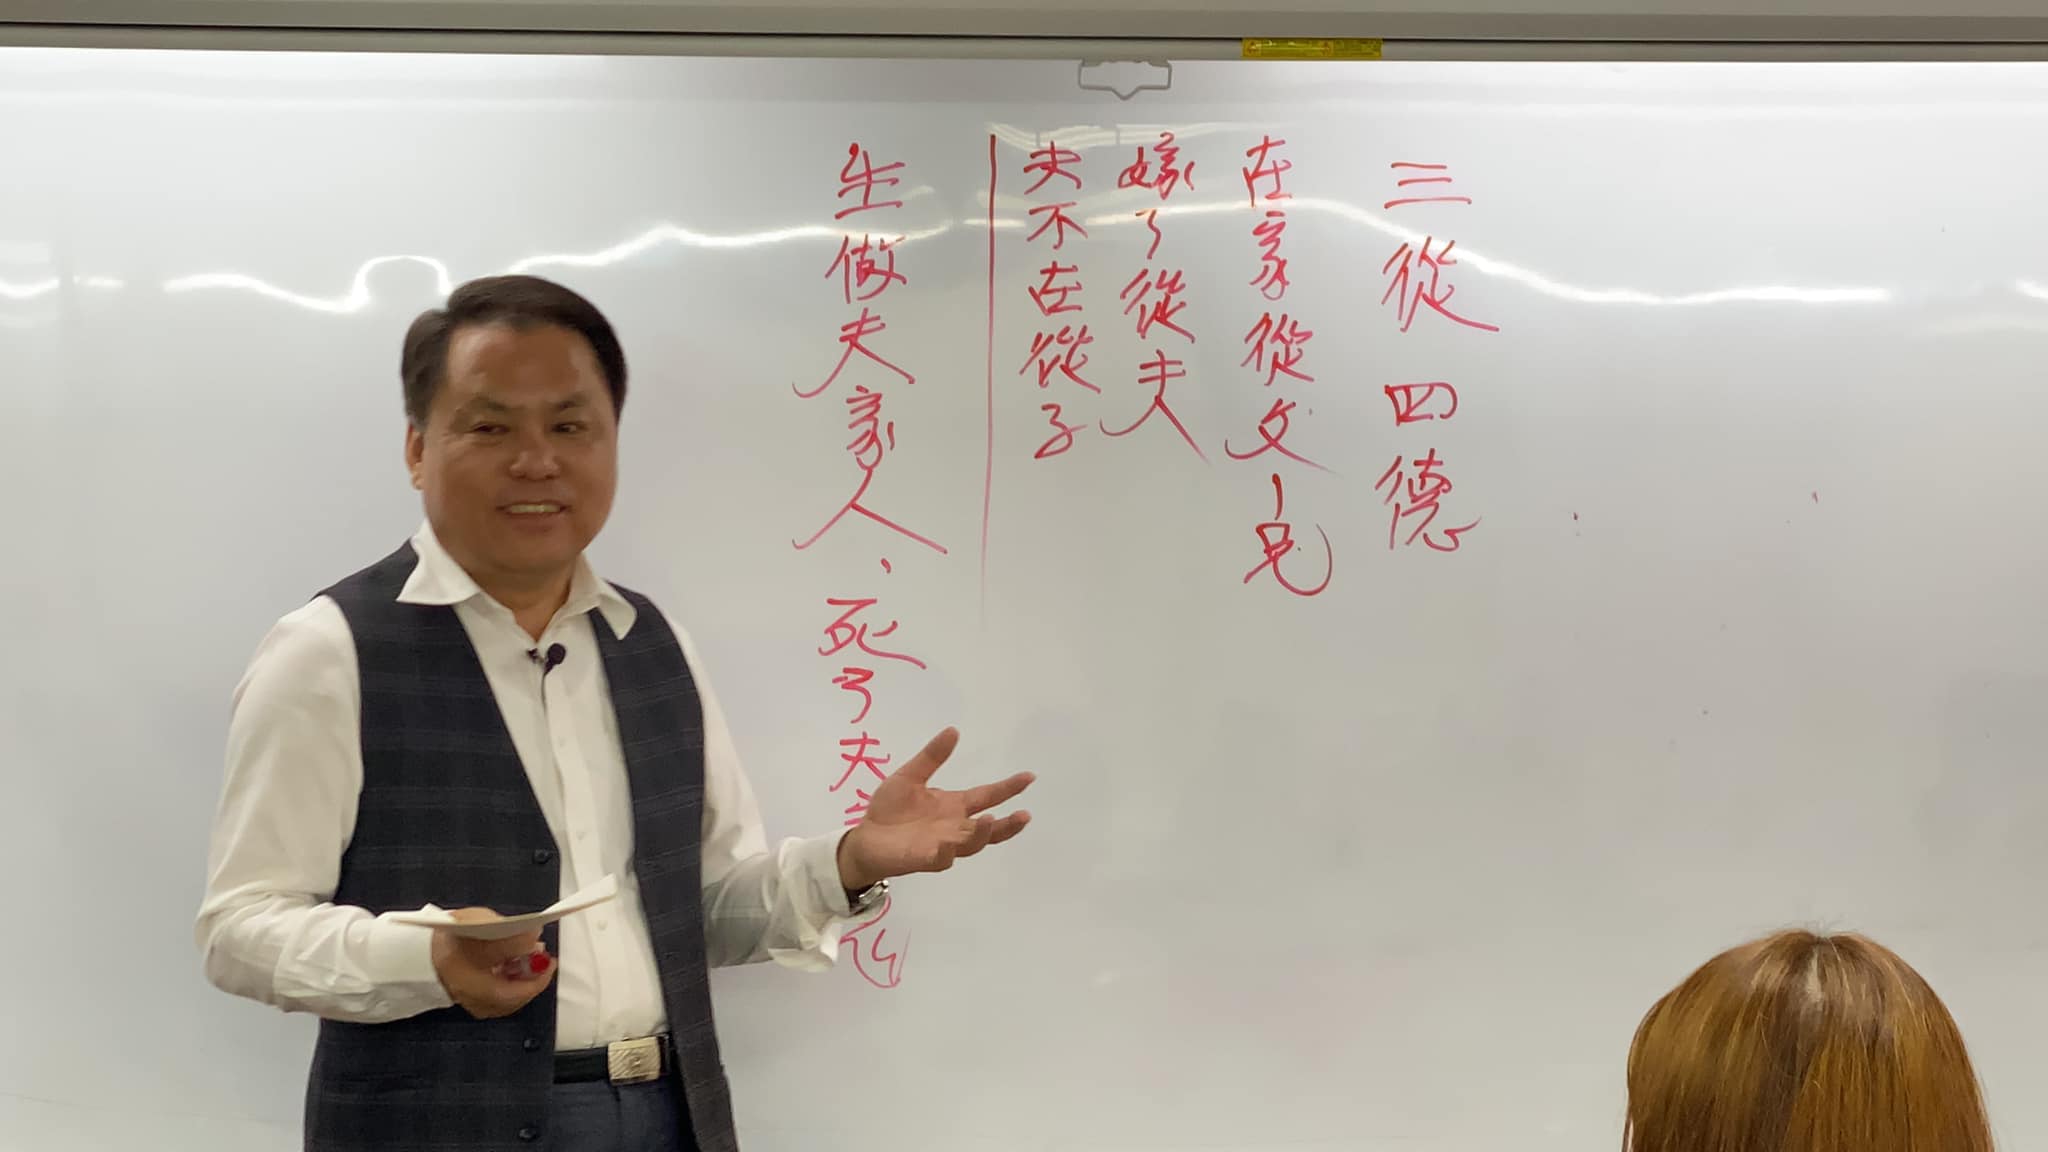 三從四德
在家從父、兄
嫁了從夫
夫不在從子
生做夫家人、死了夫